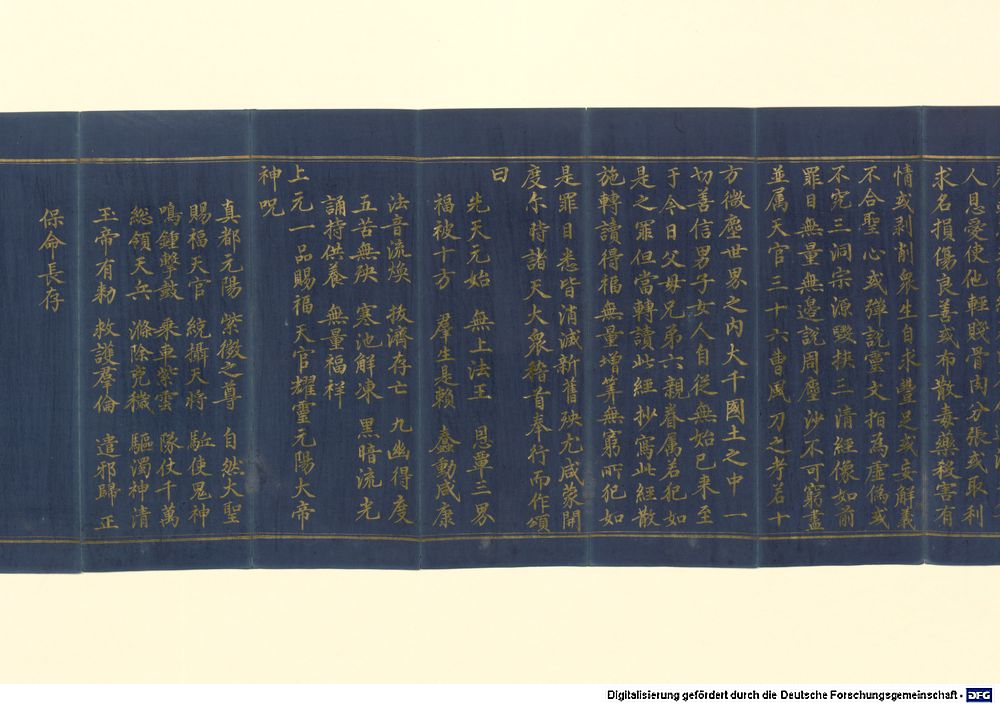 人恩愛使他輕賤骨肉分張或取利
求名損傷良善或布散毒藥移害有
情或剥削衆生自求豐足或妄解義
不合聖心或殫説靈文指為虛偽或
不究三洞宗源毀抉三清經像如前
罪目無量無邊説周塵沙不可窮盡
並属天官三十六曹風刀之考若十
方微塵世界之内大千國土之中一
切善信男子女人自從無始已来至
于今日父母兄弟六親眷属若犯如
是之罪但當轉讀此經抄寫此經散
施轉讀得福無量增筭無窮所犯如
是罪目悉皆消滅新舊殃尤咸蒙開
度尔時諸天大衆稽首奉行而作頌
曰
先天元始 無上法王 恩覃三界
福被十方 羣生是賴 蠢動咸康
法音流煥 拔濟存亡 九幽得度
五苦無殃 寒池解凍 黑暗流光
誦持供養 無量福祥
上元一品賜福天官耀靈元陽大帝
神呪
真都元陽 紫微之尊 自然大聖
賜福天官 統攝天将 駈使鬼神
鳴鍾擊鼓 乘車紫雲 隊仗千萬
總領天兵 滌除兇穢 驅濁神清
玉帝有勑 救護羣倫 遣邪歸正
保命長存
Digitalisierung gefördert durch die Deutsche Forschungsgemeinschaft - DFG